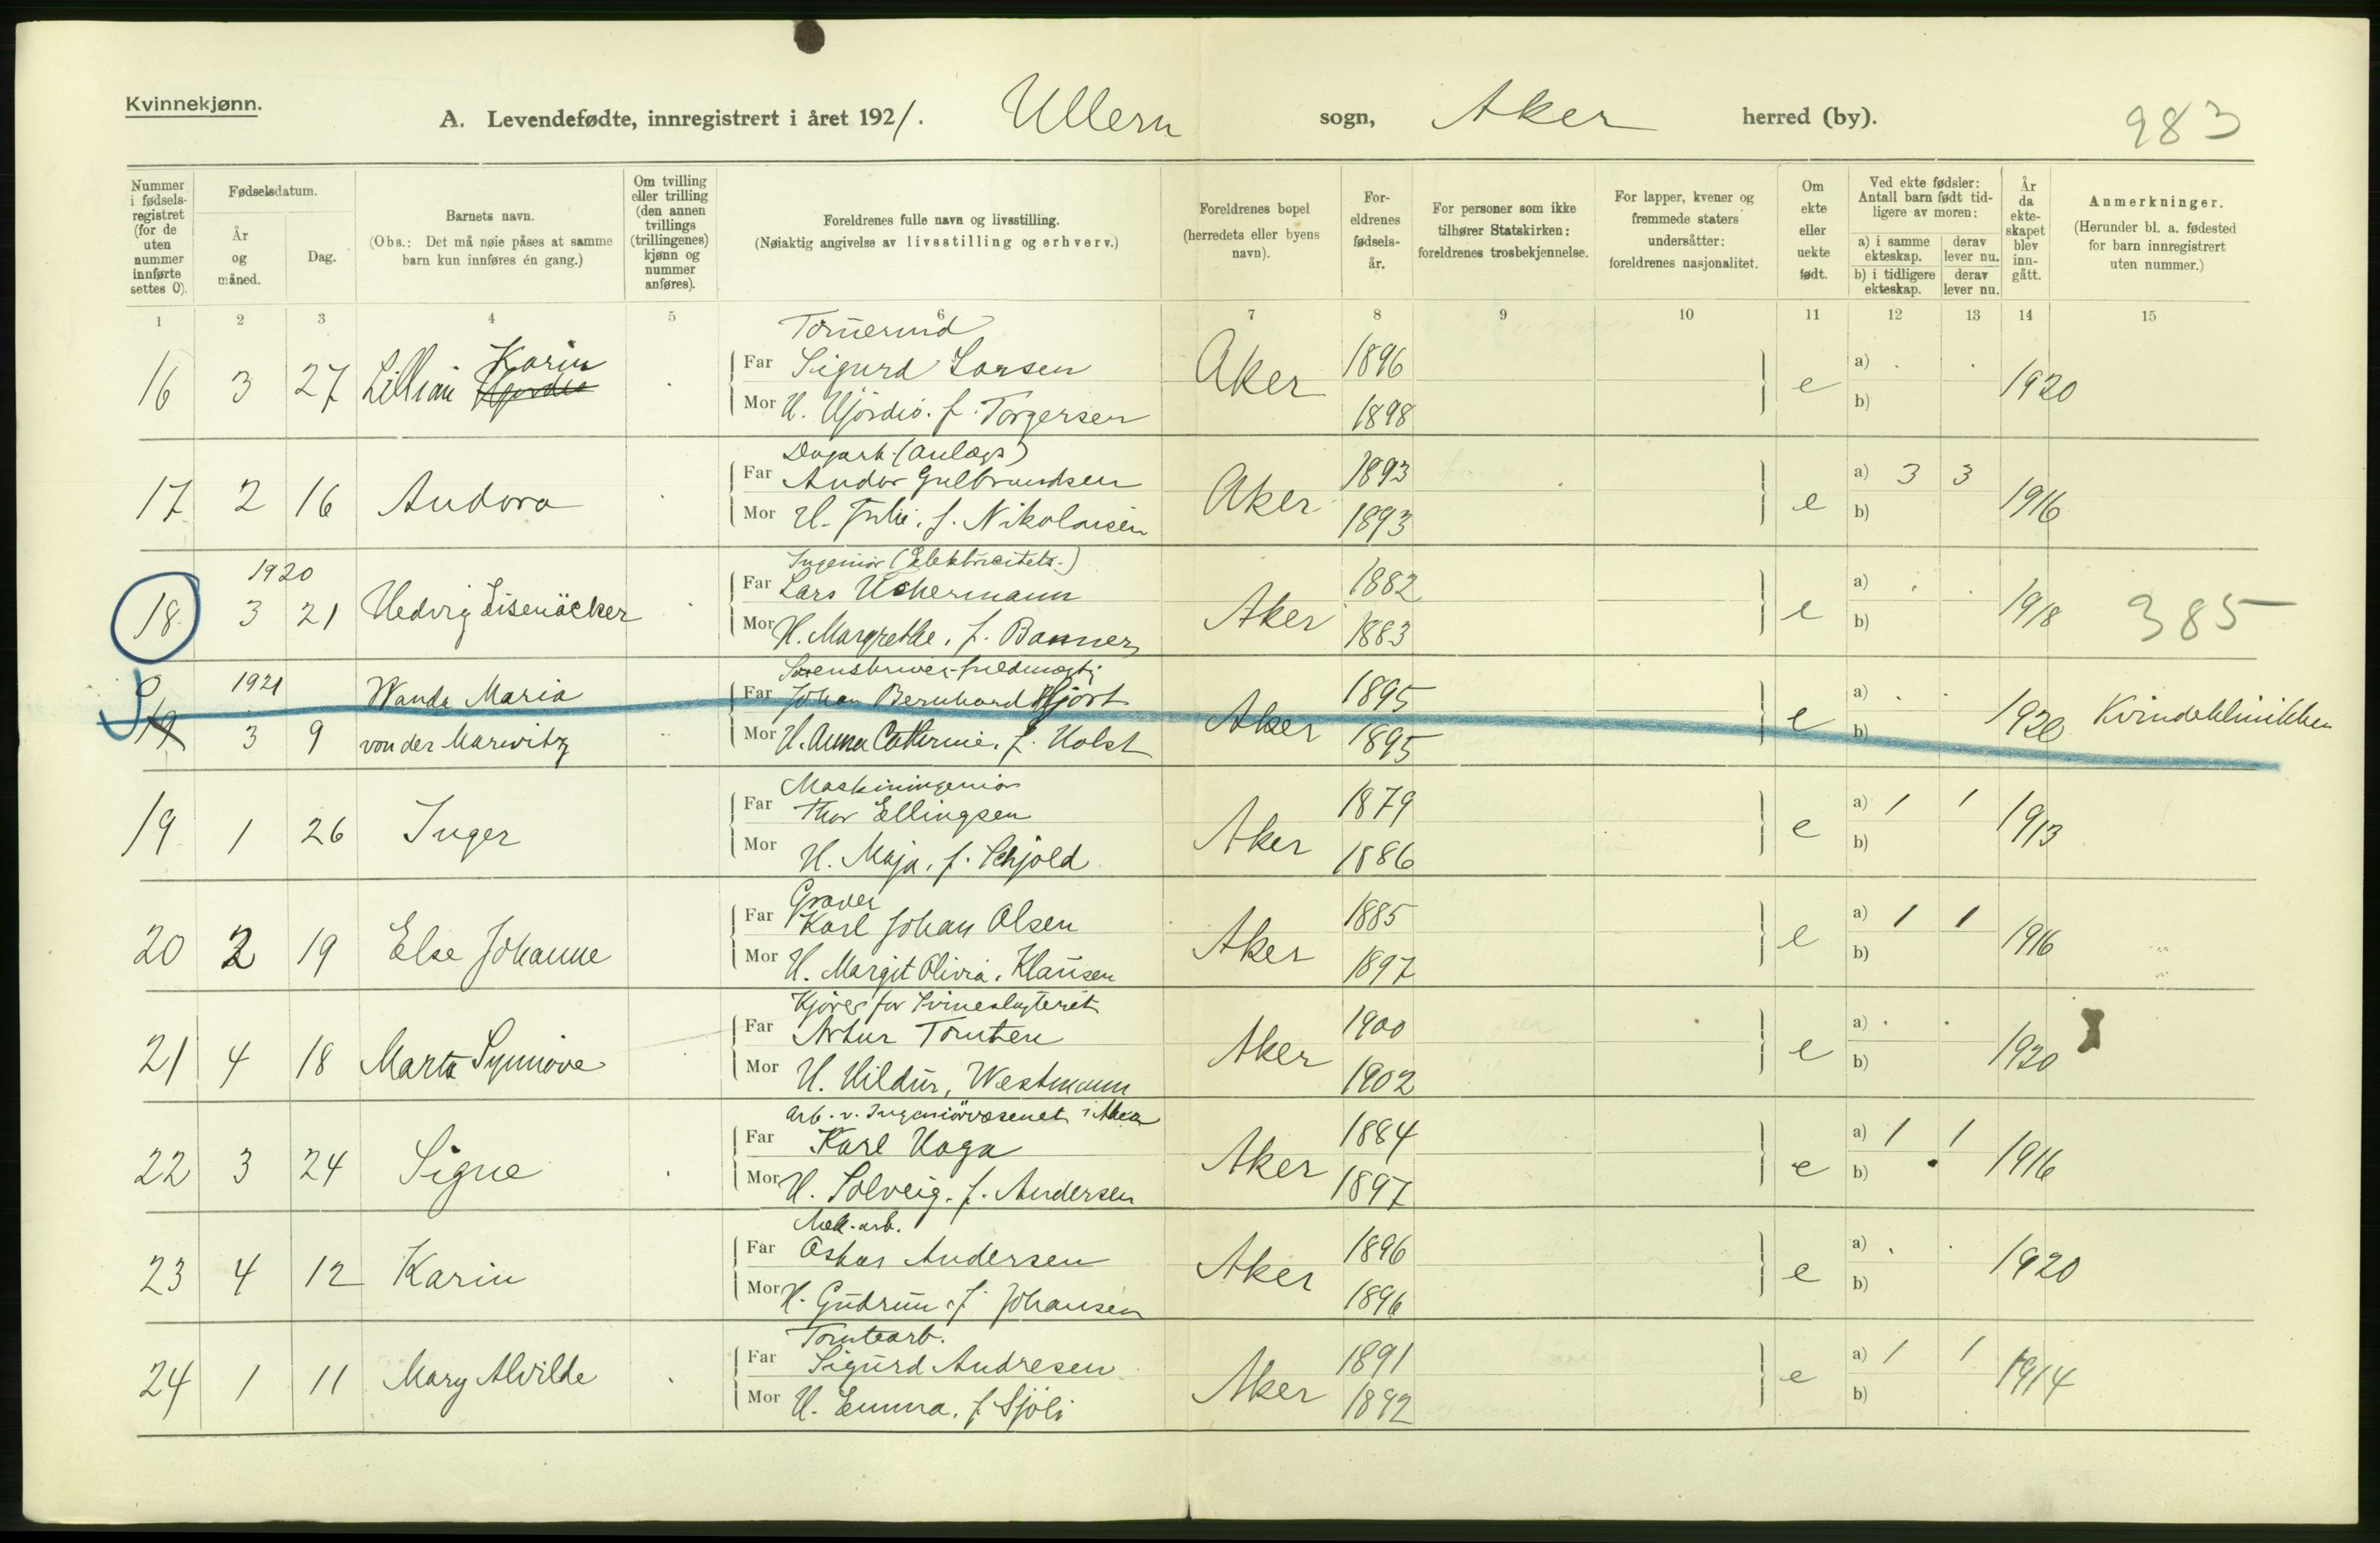 Kvinnekjønn.
A. Levendefødte, innregistrert i året 1921. Ullern sogn, Aker herred (by). 983
Nummer i fødsels-registret (for de uten nummer innførte settes 0).
Fødselsdatum.
År og måned.
Dag.
Barnets navn.
(Obs.: Det må nøie påses at samme barn kun innføres én gang.)
Om tvilling eller trilling (den annen tvillings (trillingenes) kjønn og nummer anføres).
Foreldrenes fulle navn og livsstilling.
(Nøiaktig angivelse av livsstilling og erhverv.)
Foreldrenes bopel (herredets eller byens navn).
For-eldrenes fødsels-år.
For personer som ikke tilhører Statskirken: foreldrenes trosbekjennelse.
For lapper, kvener og fremmede staters undersåtter: foreldrenes nasjonalitet.
Om ekte eller uekte født.
Ved ekte fødsler: Antall barn født tid-ligere av moren:
a) i samme ekteskap.
derav lever nu.
b) i tidligere ekteskap.
derav lever nu.
År da ekte-skapet blev inn-gått.
Anmerkninger.
(Herunder bl. a. fødested for barn innregistrert uten nummer.)
1 2 3 4 5 6 7 8 9 10 11 12 13 14 15
Karin
16 3 27 Lillian Hjordis
Far Sigurd Larsen Aker 1896 e a) 1920
Mor H. Hjördis. f. Torgersen 1898 b)
Dagarb. (anlægs)
17 2 16 Andora Far Andor Gulbrandsen Aker 1893 e a) 3 3 1916
Mor H. Julie. f. Nikolaisen 1893 b)
1920 Ingeniör (Elektricitets.)
18 3 21 Hedvig Eisenäcker Far Lars Uchermann Aker 1882 e a) 1918 385
Mor H. Margrethe. f. Banner 1883 b)
1921 Wanda Maria
19 3 9 von der Marwitz Far Johan Bernhard Hjort Aker 1895 e a) 1920 Kvindeklinikken
Mor H. Anna Cathrine. f. Holst 1895 b)
Maskiningeniör
19 1 26 Inger Far Thor Ellingsen Aker 1879 e a) 1 1 1913
Mor H. Maja. f. Schjold 1886 b)
Graver
20 2 19 Else Johanne Far Karl Johan Olsen Aker 1885 e a) 1 1 1916
Mor H. Margit Olivia. Klausen 1897 b)
Kjörer for Svineslagteriet
21 4 18 Marta Synnöve Far Artur Tomten Aker 1900 e a) 1920
Mor H. Hildur, Westmann 1902 b)
Arb. v. Ingeniörvæsenet i Aker
22 3 24 Signe Far Karl Haga Aker 1884 e a) 1 1 1916
Mor H. Solveig. f. Andersen 1897 b)
Mek. arb.
23 4 12 Karin Far Oskar Andersen Aker 1896 e a) 1920
Mor H. Gudrun. f. Johansen 1896 b)
Tomtearb.
24 1 11 Mary Alvilde Far Sigurd Andresen Aker 1891 e a) 1 1 1914
Mor H. Emma. f. Sjöli 1892 b)